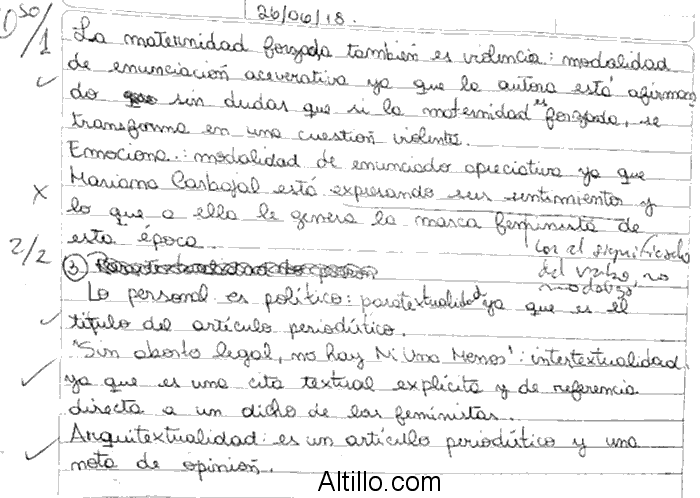 26/06/18.
La maternidad forzada también es violencia: modalidad
de enunciación aceverativa ya que la autora está afirman
do sin dudas que si la maternidad es forzada, se
transforma en una cuestión violenta.
Emociona: modalidad de enunciado apreciativa ya que
Mariana Carbajal está expresando sus sentimientos y
lo que a ella le genera la marca feminista de
esta época.
con el significado
del verbo, no
modaliza
2/2
③
Lo personal es político: paratextualidad ya que es el
título del artículo periodístico.
"Sin aborto legal, no hay Ni Una Menos": intertextualidad
ya que es una cita textual explícita y de referencia
directa a un dicho de las feministas.
Arquitextualidad: es un artículo periodístico y una
nota de opinión.
Altillo.com